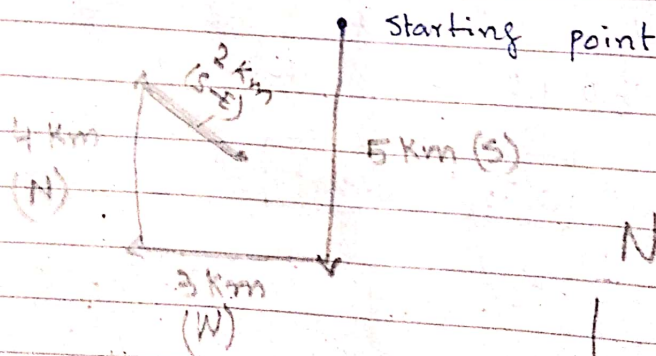 Starting point
2 Km
(SE)
4 Km
(N)
5 Km (S)
N
3 Km
(W)